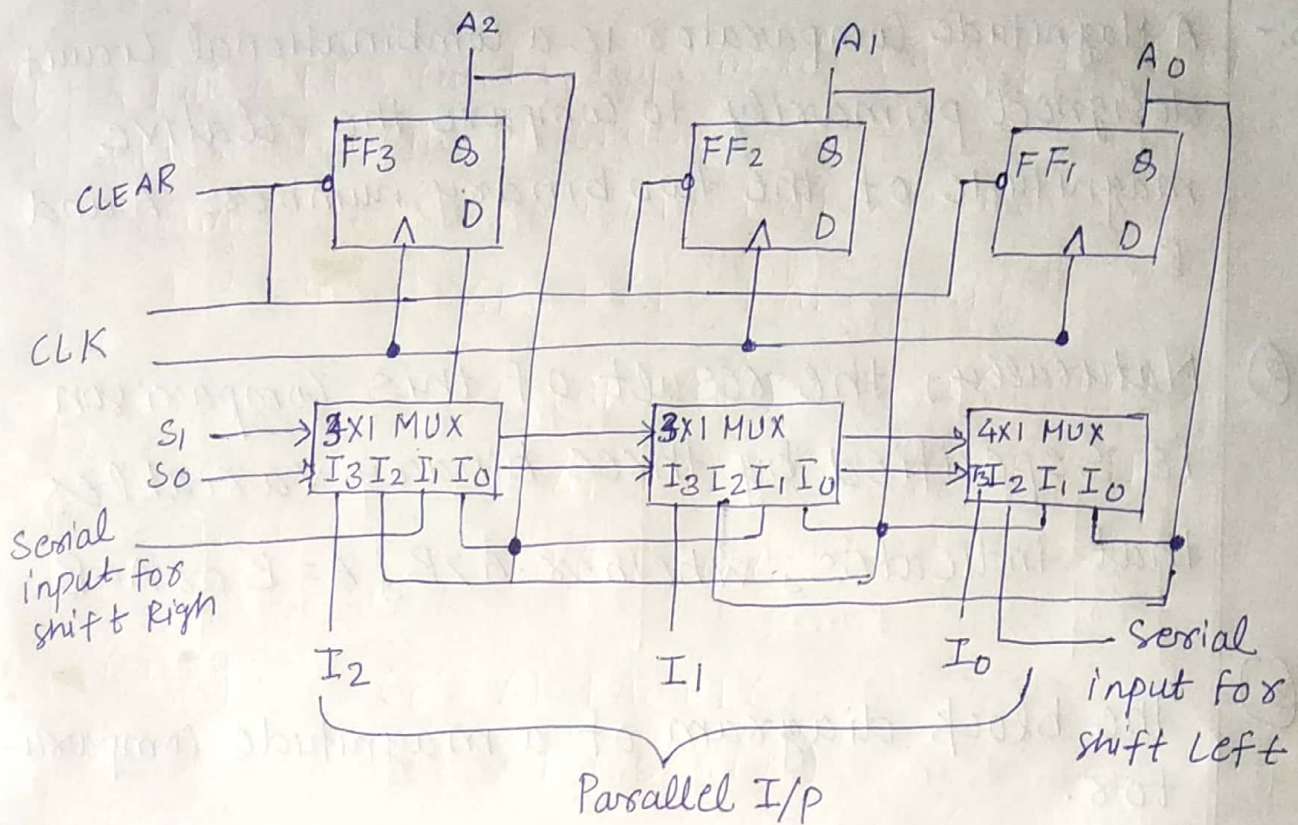 A2
A1
A0
FF3 Q
FF2 Q
FF1 Q
CLEAR
D
D
D
CLK
S1
4X1 MUX
3X1 MUX
4X1 MUX
S0
I3 I2 I1 I0
I3 I2 I1 I0
I3 I2 I1 I0
Serial
input for
shift Righ
I2
I1
I0
Serial
input for
shift Left
Parallel I/P